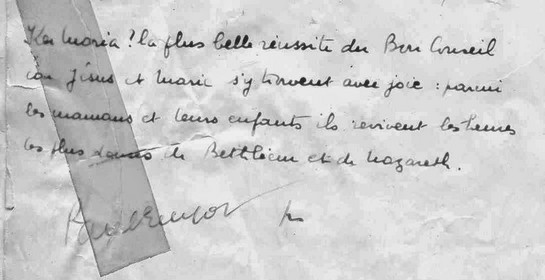 Ker Maria ! la plus belle réussite du Bon Conseil
car Jésus et Marie s'y trouvent avec joie : parmi
les mamans et leurs enfants ils revivent les heures
les plus douces de Bethléem et de Nazareth.